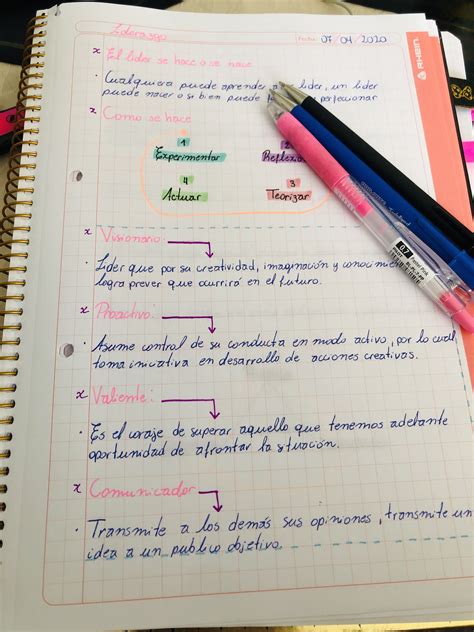 Liderazgo
Fecha 07/04/2020
x El líder se hace o se nace
· Cualquiera puede aprender a líder, un líder
puede nacer o si bien puede perfeccionar
x Como se hace
1
Experimentar
2
Reflexio
4
Actuar
3
Teorizar
x Visionario:
· Líder que por su creatividad, imaginación y conocimie
logra prever que ocurrirá en el futuro.
x Proactivo:
· Asume control de su conducta en modo activo, por lo cual
toma iniciativa en desarrollo de acciones creativas.
x Valiente:
· Es el coraje de superar aquello que tenemos adelante
oportunidad de afrontar la situación.
x Comunicador
· Transmite a los demás sus opiniones, transmite un
idea a un publico objetivo.
RHEIN
07